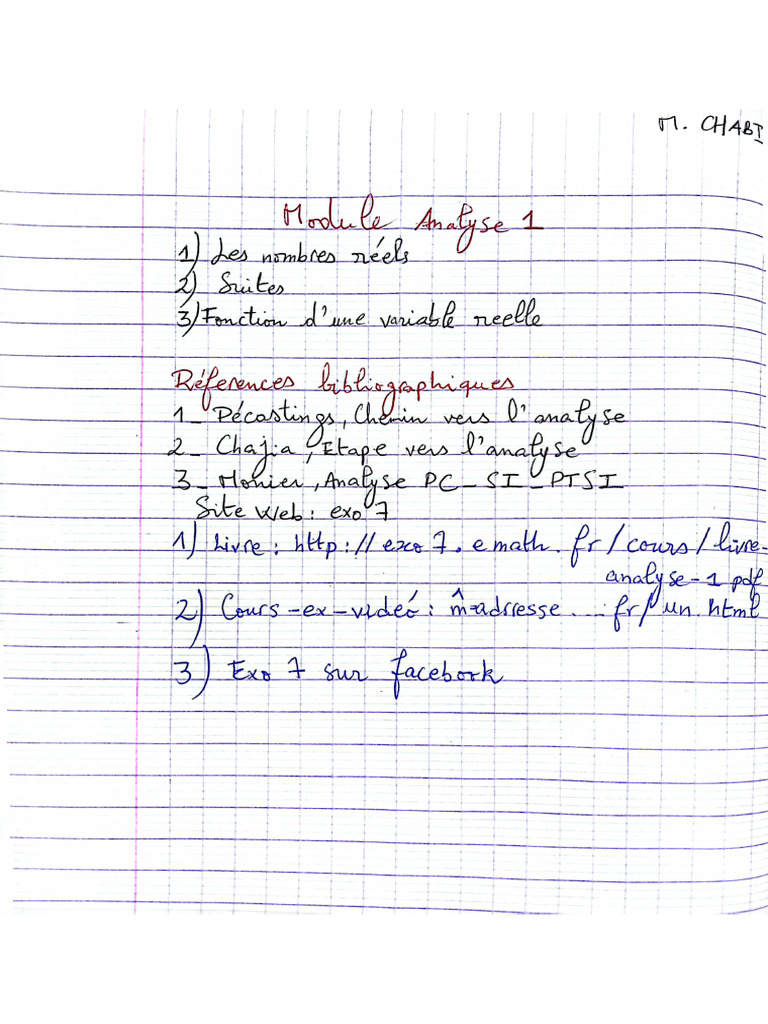 M. CHABI
Module Analyse 1
1) Les nombres réels
2) Suites
3) Fonction d'une variable reelle
Réferences bibliographiques
1_ Décastings, Chemin vers l'analyse
2_ Chajia, Etape vers l'analyse
3_ Monier, Analyse PC_SI_PTSI
Site Web: exo 7
1) Livre: http://exo7.emath.fr/cours/livre-
analyse-1 pdf
2) Cours-ex-videó: m̂-adrresse....fr/un.html
3) Exo 7 sur facebook